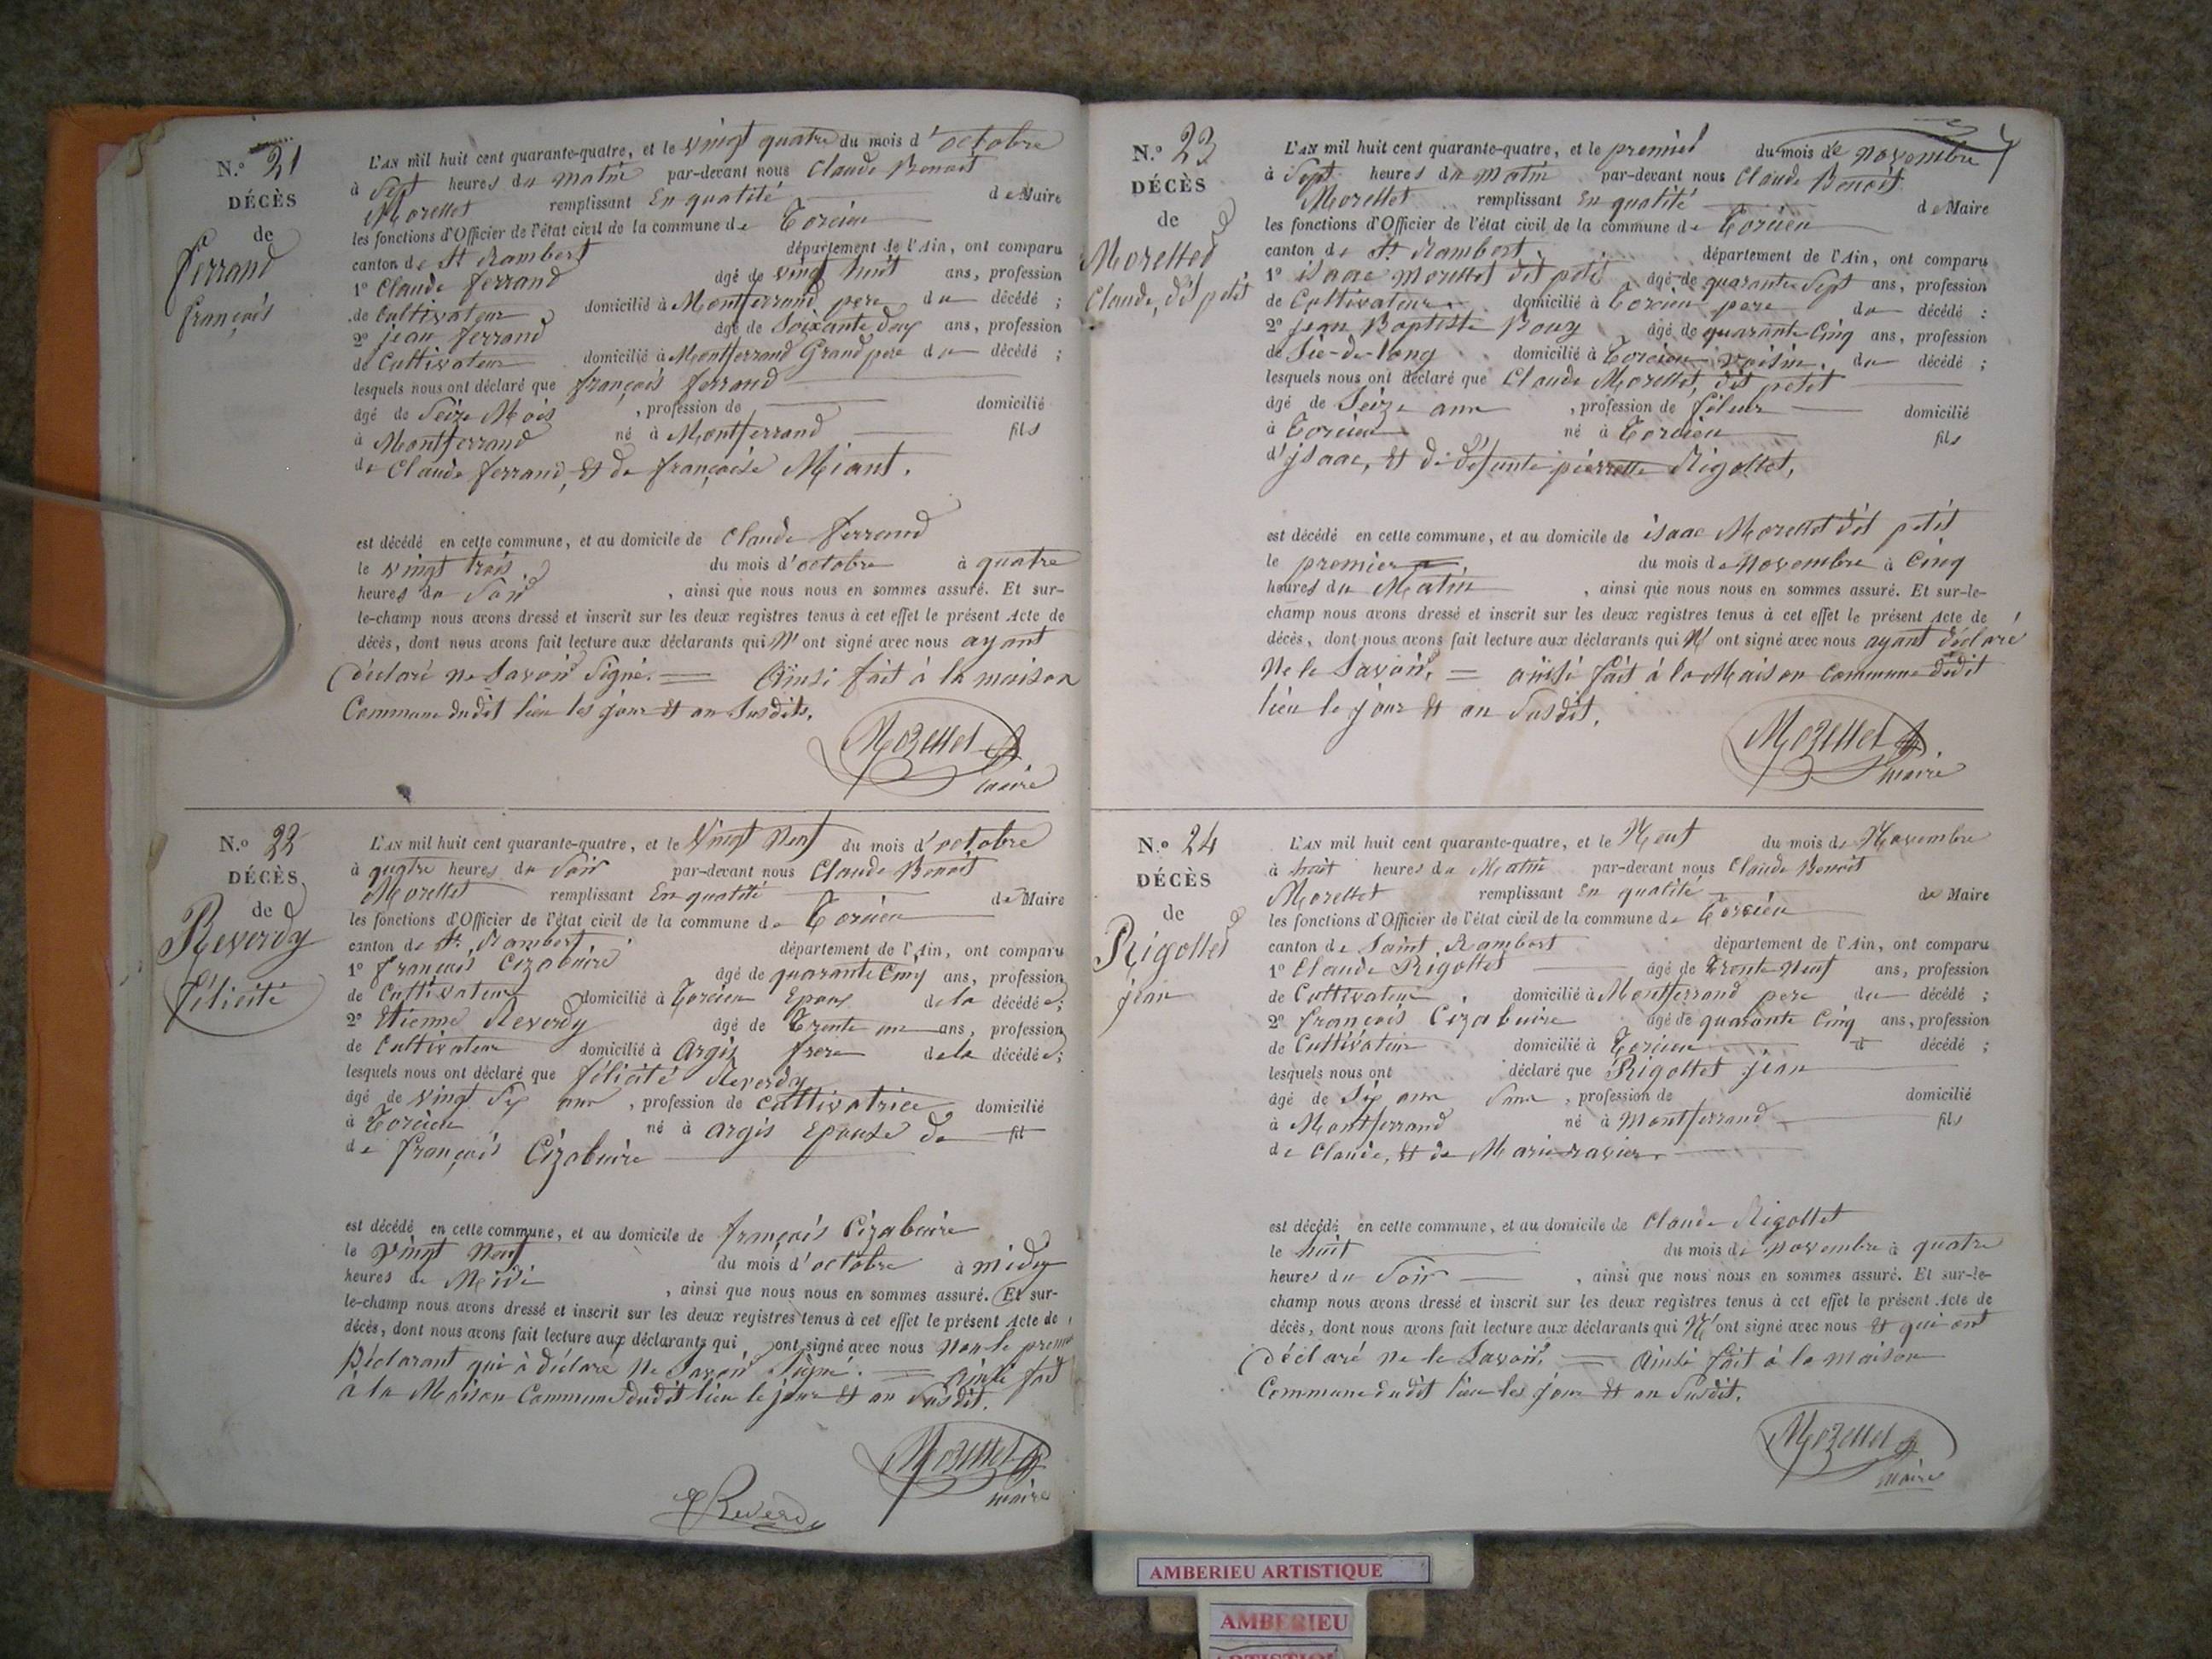 N.° 21
DÉCÈS
de
ferrand
françois
L'AN mil huit cent quarante-quatre, et le vingt quatre du mois d'octobre
à Sept heures du matin par-devant nous Claude Benoit
Morellet remplissant En qualité de Maire
les fonctions d'Officier de l'état civil de la commune de Torcieu
canton de St Rambert département de l'Ain, ont comparu
1° Claude ferrand âgé de vingt huit ans, profession
de Cultivateur domicilié à Montferrand pere du décédé ;
2° jean ferrand âgé de Soixante deux ans, profession
de Cultivateur domicilié à Montferrand Grand pere du décédé ;
lesquels nous ont déclaré que françois ferrand
âgé de Seize Mois , profession de domicilié
à Montferrand né à Montferrand fils
de Claude ferrand, et de françoise Miant.
est décédé en cette commune, et au domicile de Claude ferrand
le vingt trois du mois d'octobre à quatre
heures du Soir , ainsi que nous nous en sommes assuré. Et sur-
le-champ nous avons dressé et inscrit sur les deux registres tenus à cet effet le présent Acte de
décès, dont nous avons fait lecture aux déclarants qui N'ont signé avec nous ayant
déclaré ne Savoir Signé. = Ainsi fait à la maison
Commune dudit lieu les jour et an Susdits.
Morellet
maire
N.° 22
DÉCÈS
de
Reverdy
félicité
L'AN mil huit cent quarante-quatre, et le Vingt Neuf du mois d'octobre
à quatre heures du Soir par-devant nous Claude Benoit
Morellet remplissant En qualité de Maire
les fonctions d'Officier de l'état civil de la commune de Torcieu
canton de St Rambert département de l'Ain, ont comparu
1° françois Cizabuire âgé de quarante Cinq ans, profession
de Cultivateur domicilié à Torcieu Epoux de la décédée ;
2° Etienne Reverdy âgé de Trente un ans, profession
de Cultivateur domicilié à Argis frere de la décédée ;
lesquels nous ont déclaré que félicité Reverdy
âgé de vingt Six ans , profession de cultivatrice domicilié
à Torcieu né à argis Epouse de fil
de françois Cizabuire
est décédé en cette commune, et au domicile de françois Cizabuire
le vingt Neuf du mois d'octobre à midy
heures de Midi , ainsi que nous nous en sommes assuré. Et sur-
le-champ nous avons dressé et inscrit sur les deux registres tenus à cet effet le présent Acte de
décès, dont nous avons fait lecture aux déclarants qui ont signé avec nous Non le premier
Déclarant qui à déclare ne Savoir Signé. = Ainsi fait
à la Maison Commune dudit lieu le jour et an Susdit.
Morellet
maire
E Reverdy
N.° 23
DÉCÈS
de
Morellet
Claude, dit petit
L'AN mil huit cent quarante-quatre, et le premier du mois de Novembre
à Sept heures du Matin par-devant nous Claude Benoit
Morellet remplissant En qualité de Maire
les fonctions d'Officier de l'état civil de la commune de Torcieu
canton de St Rambert département de l'Ain, ont comparu
1° isaac Morellet dit petit âgé de quarante Sept ans, profession
de Cultivateur domicilié à Torcieu pere du décédé ;
2° jean Baptiste Bouy âgé de quarante Cinq ans, profession
de Sie-de-long domicilié à Torcieu voisin du décédé ;
lesquels nous ont déclaré que Claude Morellet, dit petit
âgé de Seize ans , profession de fileur domicilié
à Torcieu né à Torcieu fils
d'jsaac, et de défunte pierrette Rigollet,
est décédé en cette commune, et au domicile de isaac Morellet dit petit
le premier du mois de Novembre à Cinq
heures du Matin , ainsi que nous nous en sommes assuré. Et sur-le-
champ nous avons dressé et inscrit sur les deux registres tenus à cet effet le présent Acte de
décès, dont nous avons fait lecture aux déclarants qui N'ont signé avec nous ayant déclaré
Ne le Savoir, = ainsi fait à la Maison Commune dudit
lieu le jour et an Susdit.
Morellet
maire
N.° 24
DÉCÈS
de
Rigollet
jean
L'AN mil huit cent quarante-quatre, et le Neuf du mois de Novembre
à huit heures du Matin par-devant nous Claude Benoit
Morellet remplissant En qualité de Maire
les fonctions d'Officier de l'état civil de la commune de Torcieu
canton de Saint Rambert département de l'Ain, ont comparu
1° Claude Rigollet âgé de Trente Neuf ans, profession
de Cultivateur domicilié à Montferrand pere du décédé ;
2° françois Cizabuire âgé de quarante Cinq ans, profession
de Cultivateur domicilié à Torcieu d décédé ;
lesquels nous ont déclaré que Rigollet jean
âgé de Six ans Sans , profession de domicilié
à Montferrand né à Montferrand fils
de Claude, et de Marie ravier.
est décédé en cette commune, et au domicile de Claude Rigollet
le huit du mois de Novembre à quatre
heures du Soir , ainsi que nous nous en sommes assuré. Et sur-le-
champ nous avons dressé et inscrit sur les deux registres tenus à cet effet le présent Acte de
décès, dont nous avons fait lecture aux déclarants qui N'ont signé avec nous et qui ont
déclaré ne le Savoir, = Ainsi fait à la maison
Commune dudit lieu les jour et an Susdit.
Morellet
maire
AMBERIEU ARTISTIQUE
AMBERIEU
ARTISTIQUE